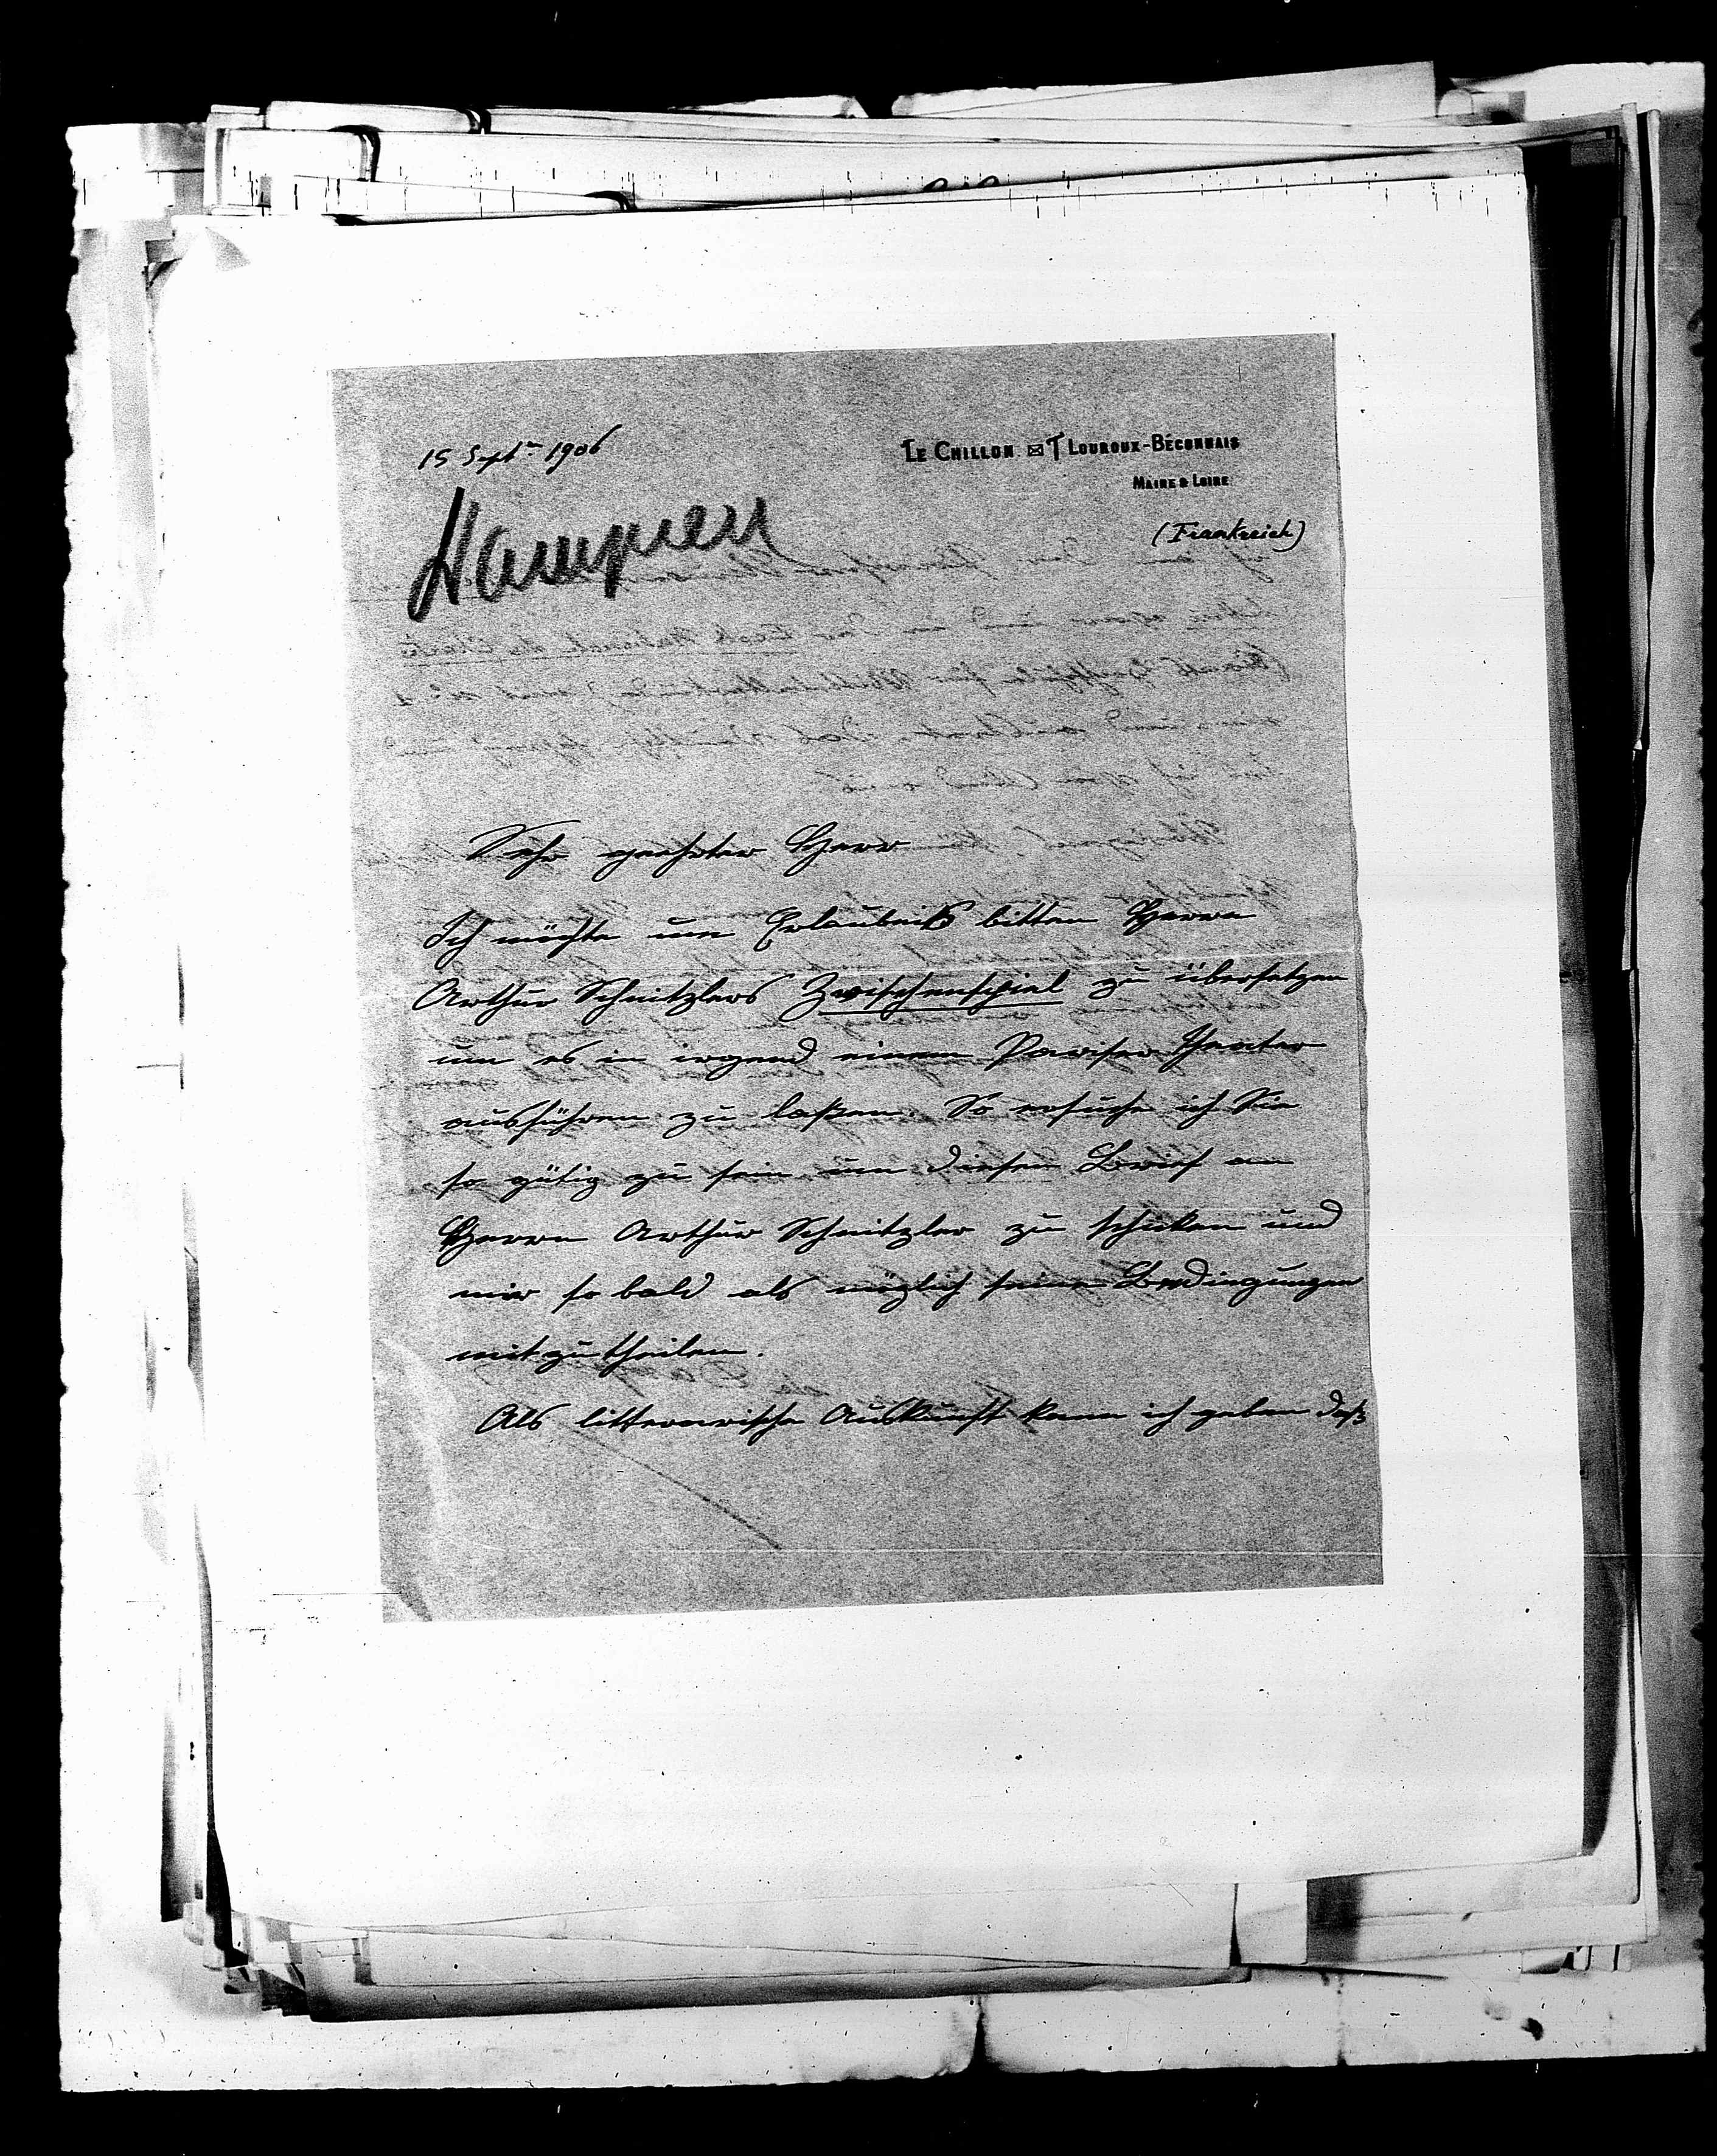 15 Sept. 1906
LE CHILLON ✉ T LOUROUX-BÉCONNAIS
MAINE & LOIRE
(Frankreich)
Sehr geehrter Herr
Ich möchte um Erlaubniß bitten Herrn
Arthur Schnitzlers Zwischenspiel zu übersetzen
um es in irgend einem Pariser Theater
aufführen zu laßen. So ersuche ich Sie
so gütig zu sein um diesen Brief an
Herrn Arthur Schnitzler zu schicken und
mir so bald als möglich seine Bedingungen
mitzutheilen.
Als litterarische Auskunft kann ich geben daß